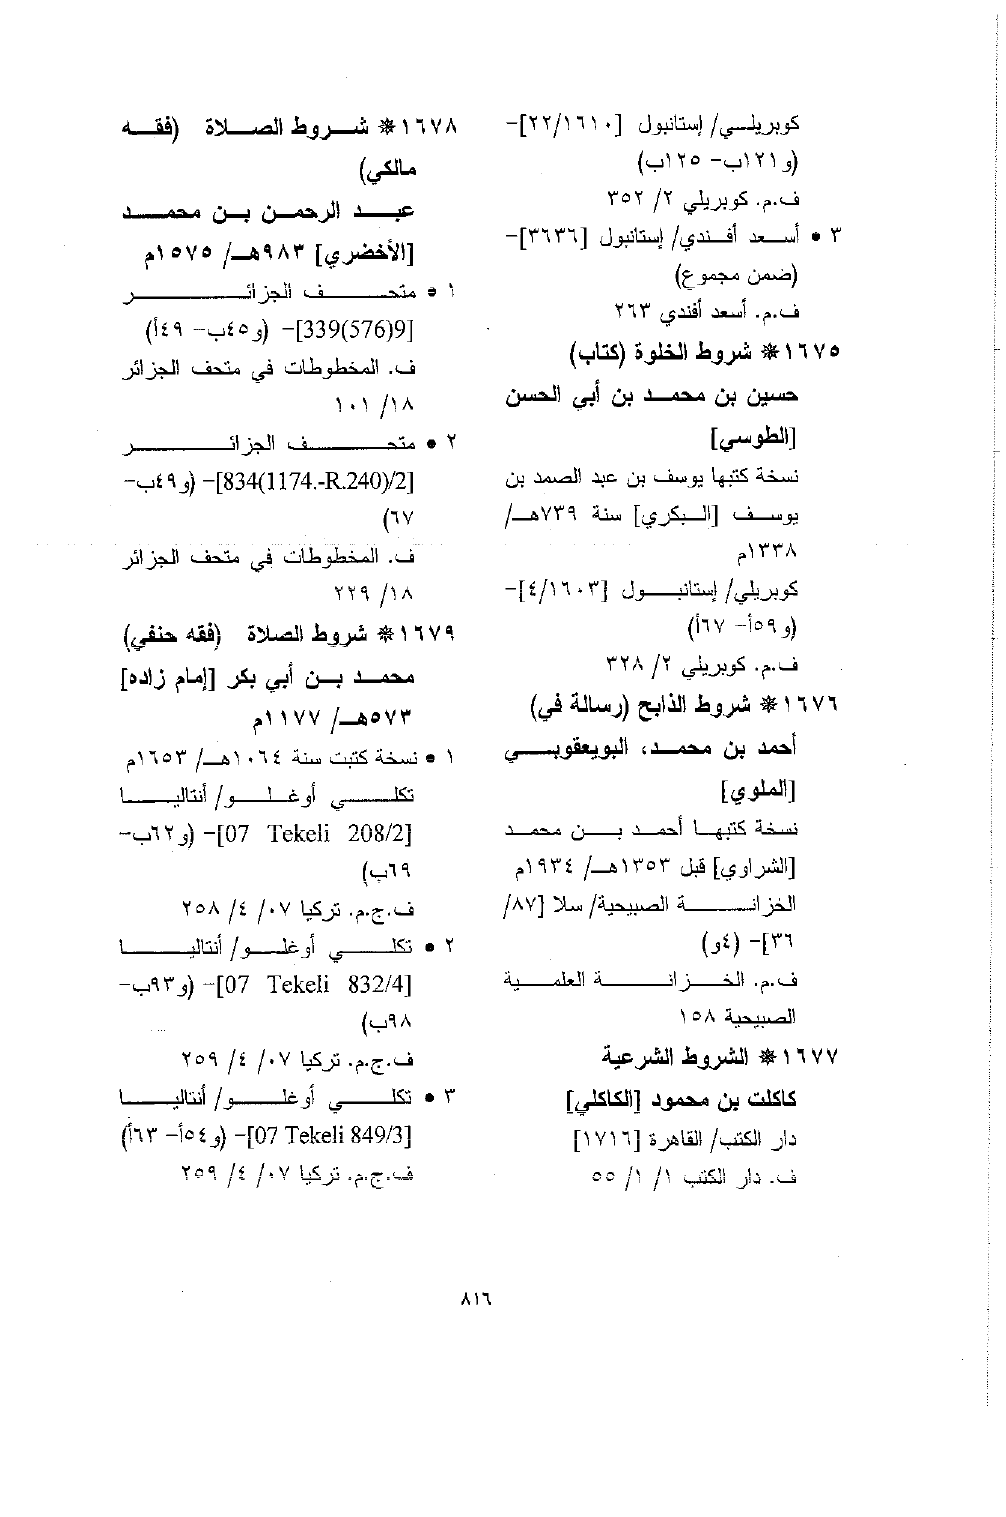 كوبريلي/ إستانبول [٢٢/١٦١٠]-
(و١٢١ب- ١٢٥ب)
ف.م. كوبريلي ٢/ ٣٥٢
٣ • أسعد أفندي/ إستانبول [٣٦٣٦]-
(ضمن مجموع)
ف.م. أسعد أفندي ٢٦٣
١٦٧٥* شروط الخلوة (كتاب)
حسين بن محمد بن أبي الحسن
[الطوسي]
نسخة كتبها يوسف بن عبد الصمد بن
يوسف [البكري] سنة ٧٣٩هـ/
١٣٣٨م
كوبريلي/ إستانبول [٤/١٦٠٣]-
(و٥٩أ- ٦٧أ)
ف.م. كوبريلي ٢/ ٣٢٨
١٦٧٦* شروط الذابح (رسالة في)
أحمد بن محمد، البويعقوبي
[الملوي]
نسخة كتبها أحمد بن محمد
[الشراوي] قبل ١٣٥٣هـ/ ١٩٣٤م
الخزانة الصبيحية/ سلا [٨٧/
٣٦]- (٤و)
ف.م. الخزانة العلمية
الصبيحية ١٥٨
١٦٧٧* الشروط الشرعية
كاكلت بن محمود [الكاكلي]
دار الكتب/ القاهرة [١٧١٦]
ف. دار الكتب ١/ ١/ ٥٥
١٦٧٨* شروط الصلاة (فقه
مالكي)
عبد الرحمن بن محمد
[الأخضري] ٩٨٣هـ/ ١٥٧٥م
١ • متحف الجزائر
[339(576)9]- (و٤٥ب- ٤٩أ)
ف. المخطوطات في متحف الجزائر
١٨/ ١٠١
٢ • متحف الجزائر
[834(1174.-R.240)/2]- (و٤٩ب-
٦٧)
ف. المخطوطات في متحف الجزائر
١٨/ ٢٢٩
١٦٧٩* شروط الصلاة (فقه حنفي)
محمد بن أبي بكر [إمام زاده]
٥٧٣هـ/ ١١٧٧م
١ • نسخة كتبت سنة ١٠٦٤هـ/ ١٦٥٣م
تكلي أوغلو/ أنتاليا
[07 Tekeli 208/2]- (و٦٢ب-
٦٩ب)
ف.ج.م. تركيا ٠٧/ ٤/ ٢٥٨
٢ • تكلي أوغلو/ أنتاليا
[07 Tekeli 832/4]- (و٩٣ب-
٩٨ب)
ف.ج.م. تركيا ٠٧/ ٤/ ٢٥٩
٣ • تكلي أوغلو/ أنتاليا
[07 Tekeli 849/3]- (و٥٤أ- ٦٣أ)
ف.ج.م. تركيا ٠٧/ ٤/ ٢٥٩
٨١٦